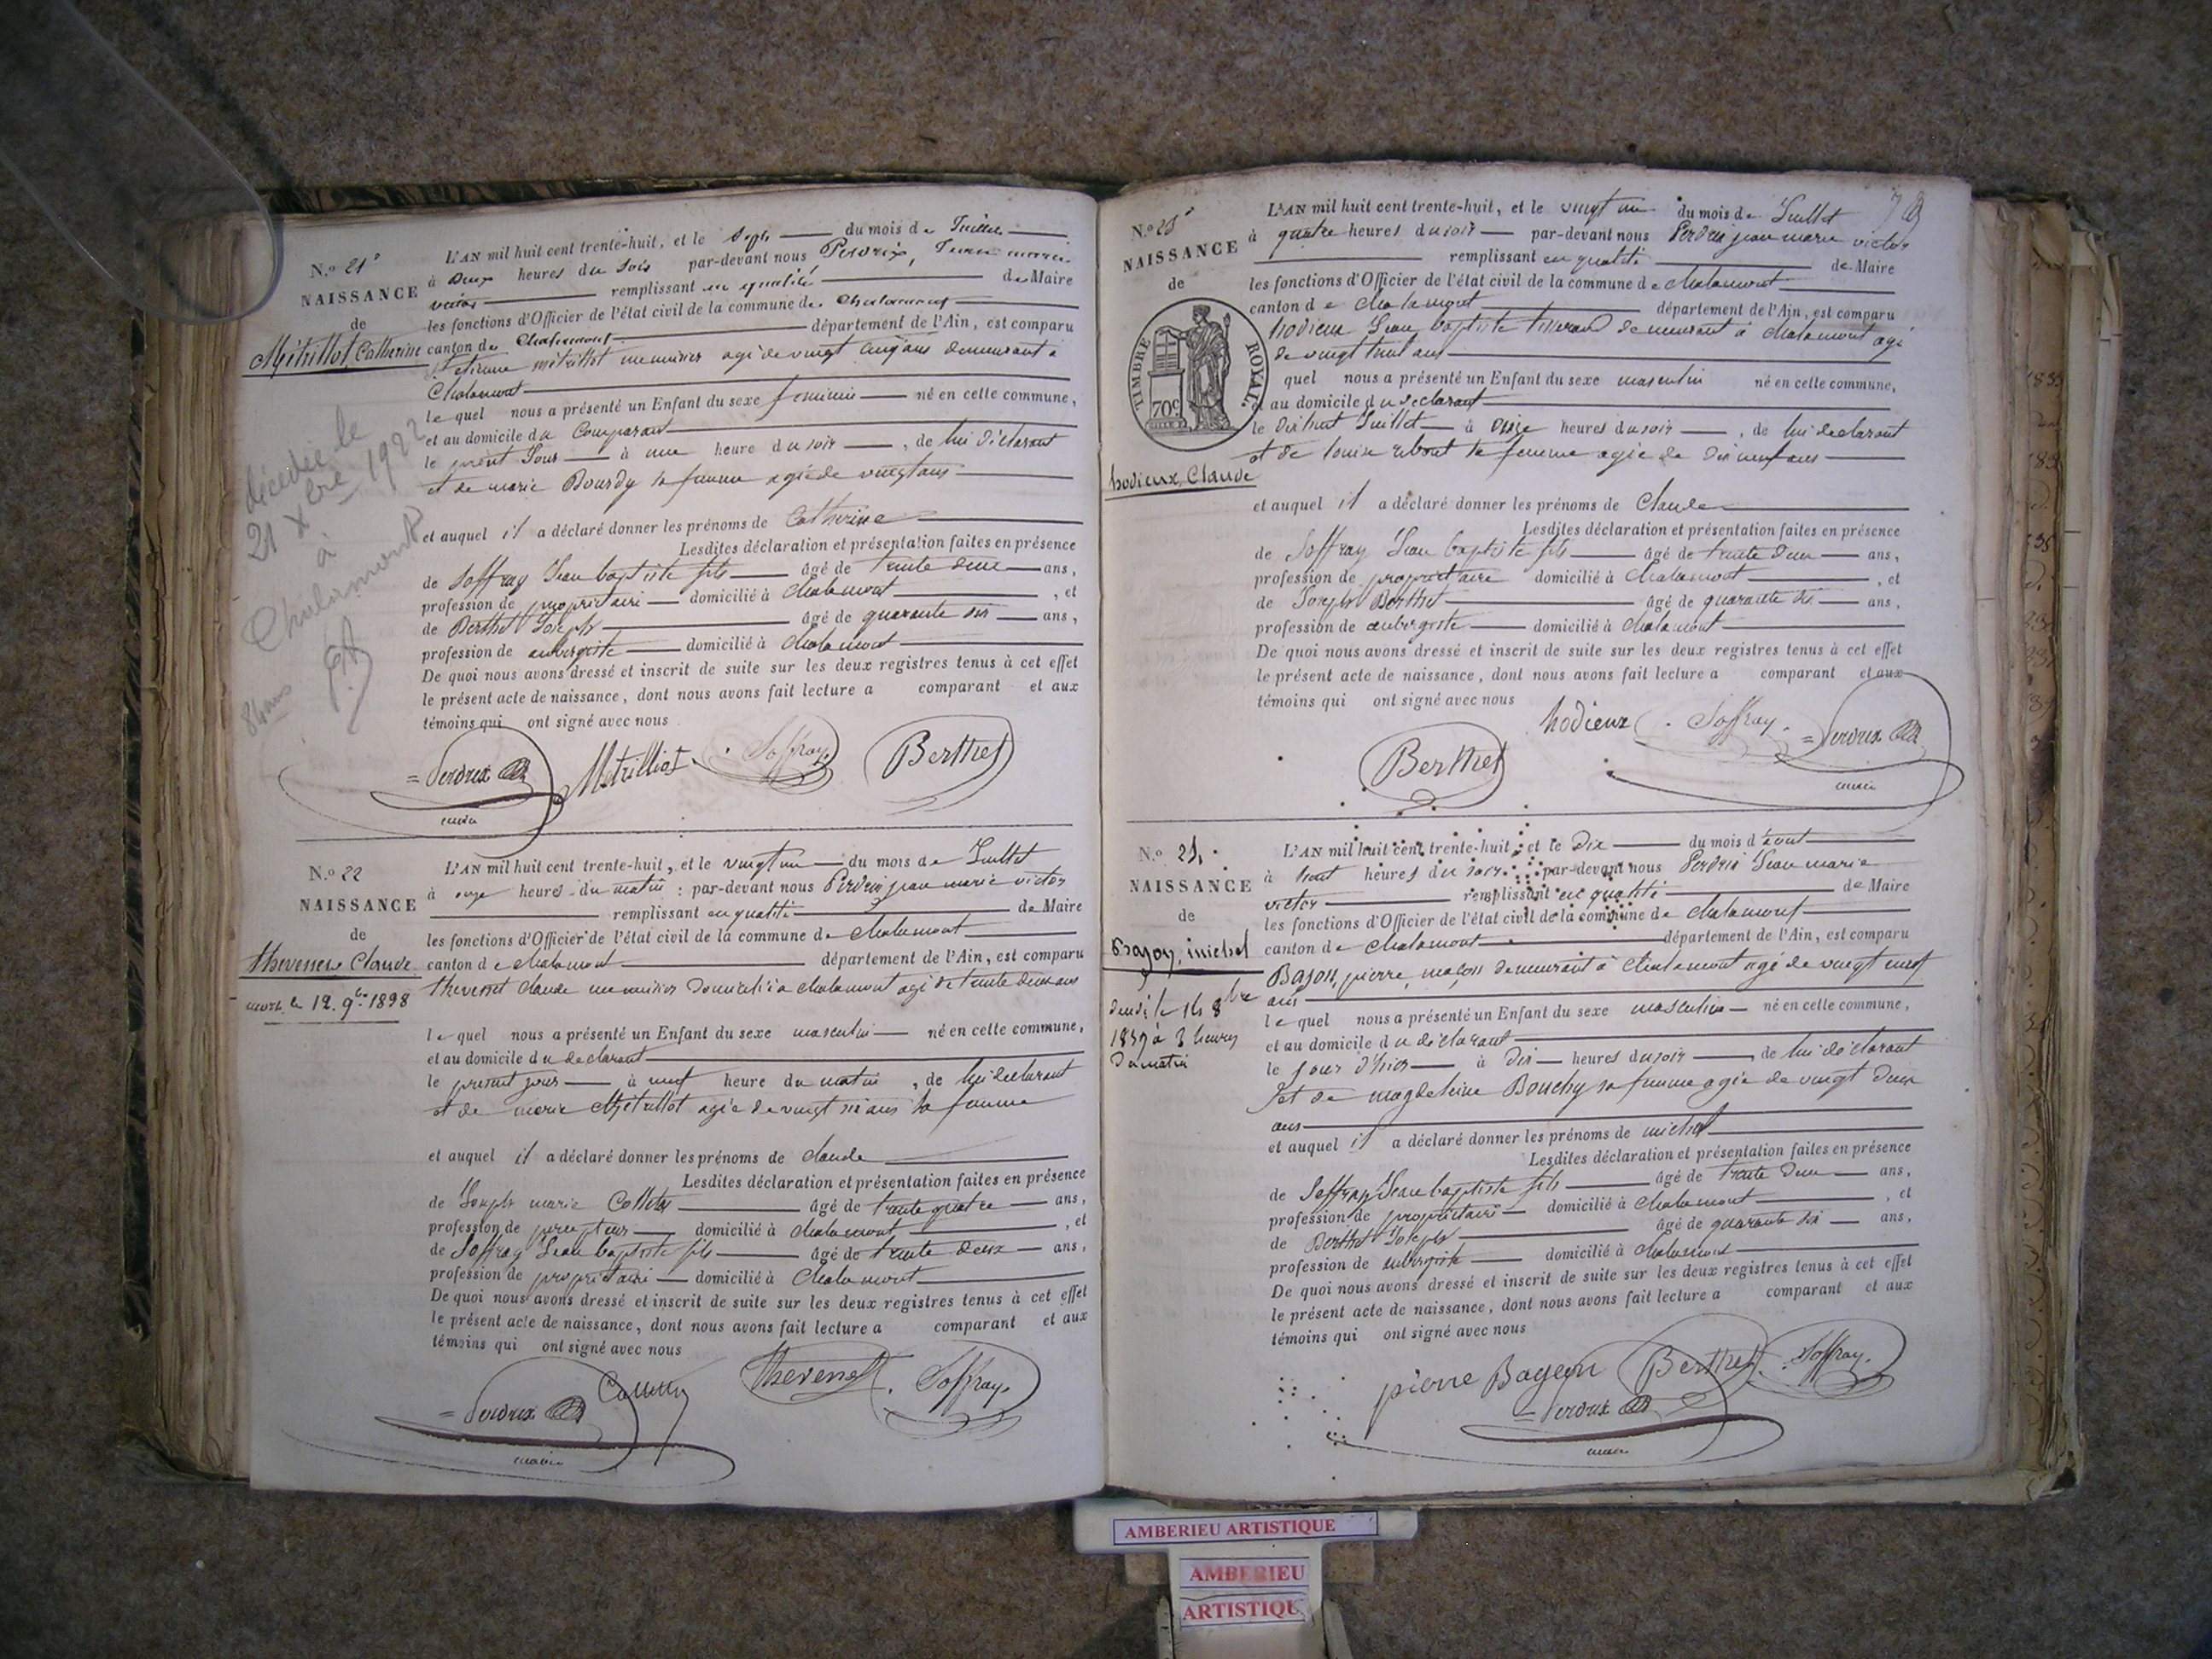 N.º 21
NAISSANCE
de
Métrillot, Catherine
décédée le
21 Xbre 1922
à
Chalamont
84 ans
L'AN mil huit cent trente-huit, et le sept du mois de Juillet
à deux heures du soir par-devant nous Perdrix, Jean marie
victor remplissant en qualité de Maire
les fonctions d'Officier de l'état civil de la commune de Chalamont
canton de Chalamont département de l'Ain, est comparu
Etienne métrillot meunier agé de vingt cinq ans demeurant à
Chalamont
le quel nous a présenté un Enfant du sexe feminin né en cette commune,
et au domicile du Comparant
le présent Jour à une heure du soir, de lui déclarant
et de marie Bourdy sa femme agée de vingt ans
et auquel il a déclaré donner les prénoms de Catherine
Lesdites déclaration et présentation faites en présence
de Soffray Jean baptiste fils âgé de trente deux ans,
profession de propriétaire domicilié à Chalamont, et
de Berthet Joseph âgé de quarante six ans,
profession de aubergiste domicilié à Chalamont
De quoi nous avons dressé et inscrit de suite sur les deux registres tenus à cet effet
le présent acte de naissance, dont nous avons fait lecture a comparant et aux
témoins qui ont signé avec nous
= Perdrix Métrilliot Soffray Berthet
maire
N.º 22
NAISSANCE
de
thevenet Claude
mort le 12. 9bre 1898
L'AN mil huit cent trente-huit, et le vingt un du mois de Juillet
à onze heures du matin : par-devant nous Perdrix jean marie victor
remplissant en qualité de Maire
les fonctions d'Officier de l'état civil de la commune de Chalamont
canton de chalamont département de l'Ain, est comparu
thevenet claude meunier domicilié à chalamont agé de trente deux ans
le quel nous a présenté un Enfant du sexe masculin né en cette commune,
et au domicile du declarant
le présent jour à neuf heure du matin, de lui declarant
et de marie Métrillot agée de vingt six ans sa femme
et auquel il a déclaré donner les prénoms de claude
Lesdites déclaration et présentation faites en présence
de Joseph marie âgé de trente quatre ans,
profession de percepteur domicilié à chalamont, et
de Soffray Jean baptiste fils âgé de trente deux ans,
profession de propriétaire domicilié à Chalamont
De quoi nous avons dressé et inscrit de suite sur les deux registres tenus à cet effet
le présent acte de naissance, dont nous avons fait lecture a comparant et aux
témoins qui ont signé avec nous
thevenet Soffray
= Perdrix
maire
78
N.º 23
NAISSANCE
de
TIMBRE ROYAL
70c
hodieux, Claude
L'AN mil huit cent trente-huit, et le vingt un du mois de Juillet
à quatre heures du soir par-devant nous Perdrix jean marie victor
remplissant en qualité de Maire
les fonctions d'Officier de l'état civil de la commune de Chalamont
canton de Chalamont département de l'Ain, est comparu
hodieux Jean baptiste tisserand demeurant à chalamont agé
de vingt huit ans
quel nous a présenté un Enfant du sexe masculin né en cette commune,
et au domicile du declarant
le dix huit Juillet à onze heures du soir, de lui declarant
et de louise sa femme agée de dix neuf ans
et auquel il a déclaré donner les prénoms de Claude
Lesdites déclaration et présentation faites en présence
de Soffray Jean baptiste fils âgé de trente deux ans,
profession de propriétaire domicilié à Chalamont, et
de Joseph Berthet âgé de quarante six ans,
profession de aubergiste domicilié à Chalamont
De quoi nous avons dressé et inscrit de suite sur les deux registres tenus à cet effet
le présent acte de naissance, dont nous avons fait lecture a comparant et aux
témoins qui ont signé avec nous
hodieux Soffray = Perdrix
Berthet maire
N.º 24
NAISSANCE
de
Bajon, michel
1839 à 3 heures
du matin
L'AN mil huit cent trente-huit, et le dix du mois d'août
à huit heures du soir par-devant nous Perdrix Jean marie
victor remplissant en qualité de Maire
les fonctions d'Officier de l'état civil de la commune de chalamont
canton de Chalamont département de l'Ain, est comparu
Bajon, pierre, maçon demeurant à Chalamont agé de vingt neuf
ans
le quel nous a présenté un Enfant du sexe masculin né en cette commune,
et au domicile du déclarant
le jour d'hier à dix heures du soir, de lui déclarant
et de magdeleine Bouchy sa femme agée de vingt deux
ans
et auquel il a déclaré donner les prénoms de michel
Lesdites déclaration et présentation faites en présence
de Soffray Jean baptiste fils âgé de trente deux ans,
profession de propriétaire domicilié à Chalamont, et
de Berthet Joseph âgé de quarante six ans,
profession de aubergiste domicilié à Chalamont
De quoi nous avons dressé et inscrit de suite sur les deux registres tenus à cet effet
le présent acte de naissance, dont nous avons fait lecture a comparant et aux
témoins qui ont signé avec nous
pierre Bageon Berthet Soffray
= Perdrix
maire
AMBERIEU ARTISTIQUE
AMBERIEU
ARTISTIQUE